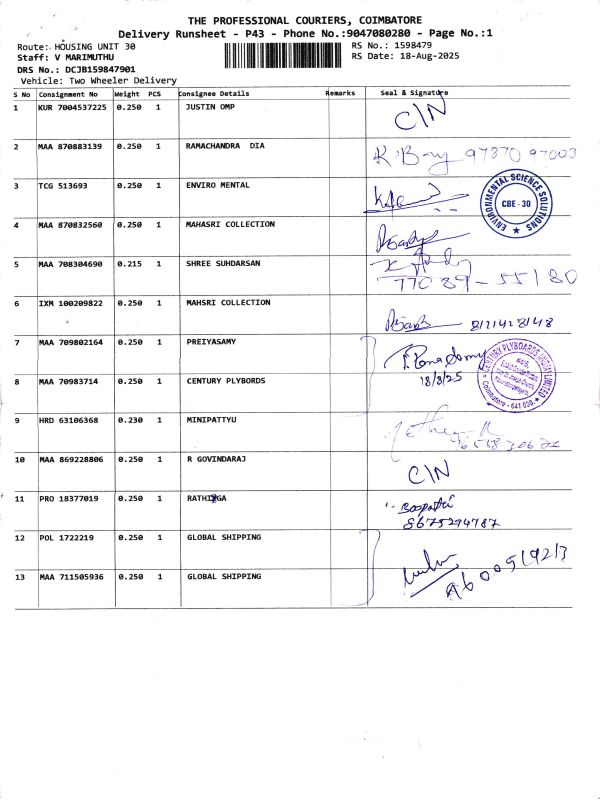 THE PROFESSIONAL COURIERS, COIMBATORE
Delivery Runsheet - P43 - Phone No.:9047080280 - Page No.:1
Route: HOUSING UNIT 30 RS No.: 1598479
Staff: V MARIMUTHU RS Date: 18-Aug-2025
DRS No.: DCJB159847901
Vehicle: Two Wheeler Delivery
S No Consignment No Weight PCS Consignee Details Remarks Seal & Signature
1 KUR 7004537225 0.250 1 JUSTIN OMP C/N
2 MAA 870883139 0.250 1 RAMACHANDRA DIA 97870 97003
3 TCG 513693 0.250 1 ENVIRO MENTAL
ENVIRONMENTAL SCIENCE SOLUTIONS
CBE - 30
4 MAA 870832560 0.250 1 MAHASRI COLLECTION
5 MAA 708304690 0.215 1 SHREE SUHDARSAN
77039-55180
6 IXM 100209822 0.250 1 MAHSRI COLLECTION
7 MAA 709802164 0.250 1 PREIYASAMY
18/8/25
CENTURY PLYBOARDS (INDIA) LIMITED
Coimbatore - 641 030.
8 MAA 70983714 0.250 1 CENTURY PLYBORDS
9 HRD 63106368 0.230 1 MINIPATTYU
10 MAA 869228806 0.250 1 R GOVINDARAJ C/N
11 PRO 18377019 0.250 1 Boopathi
8675294787
12 POL 1722219 0.250 1 GLOBAL SHIPPING
13 MAA 711505936 0.250 1 GLOBAL SHIPPING